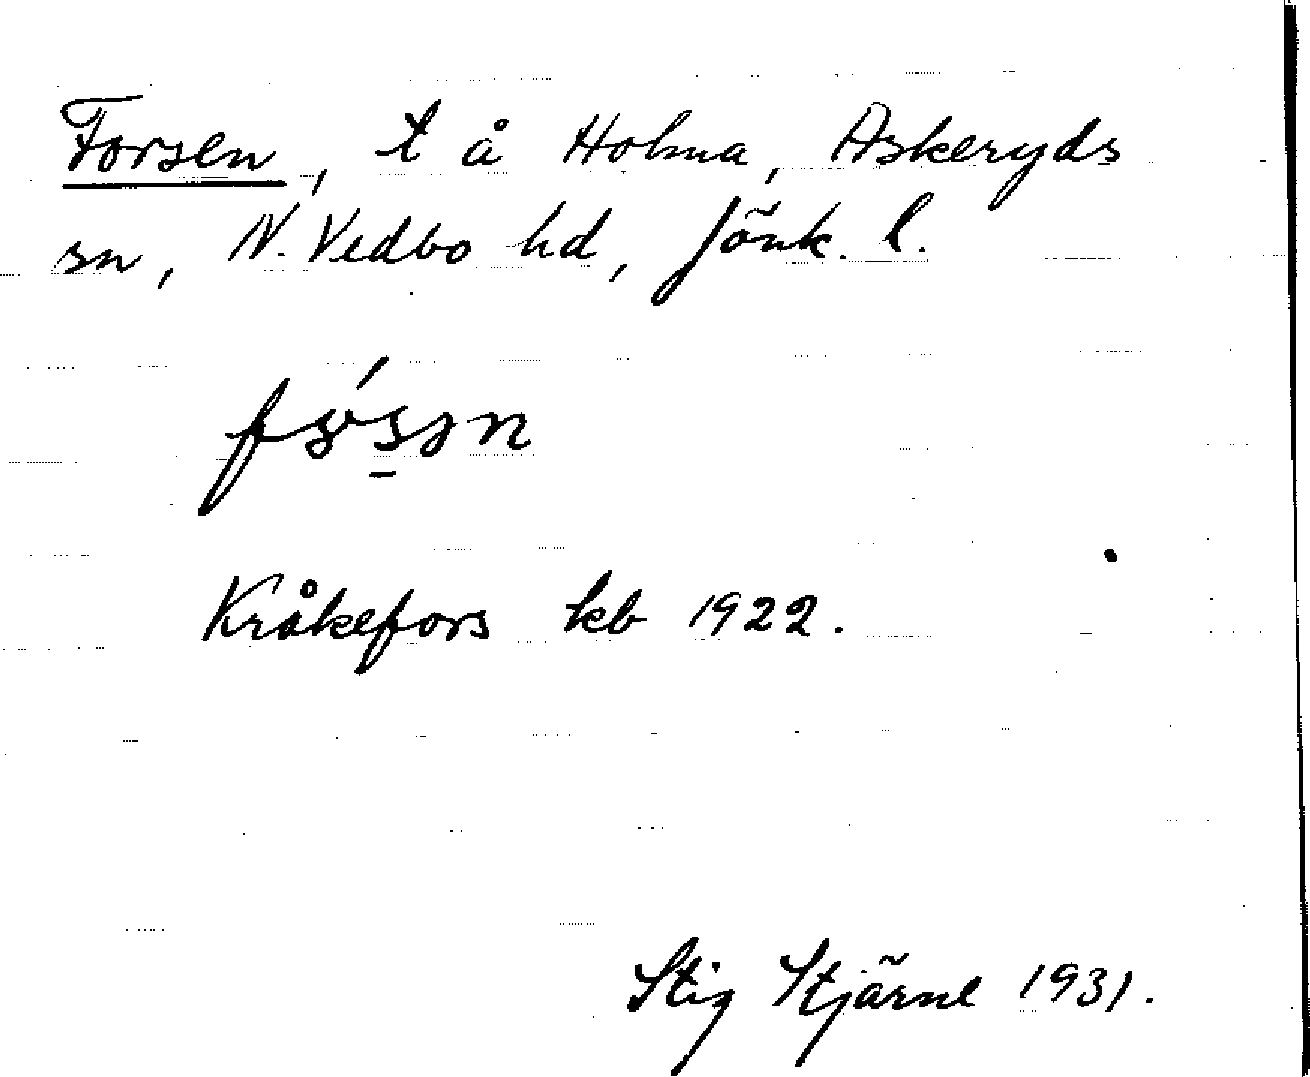 Forsen, t å Holma, Askeryds
sn, N. Vedbo hd, Jönk. l.
Kråkefors kb 1922.
Stig Stjärne 1931.